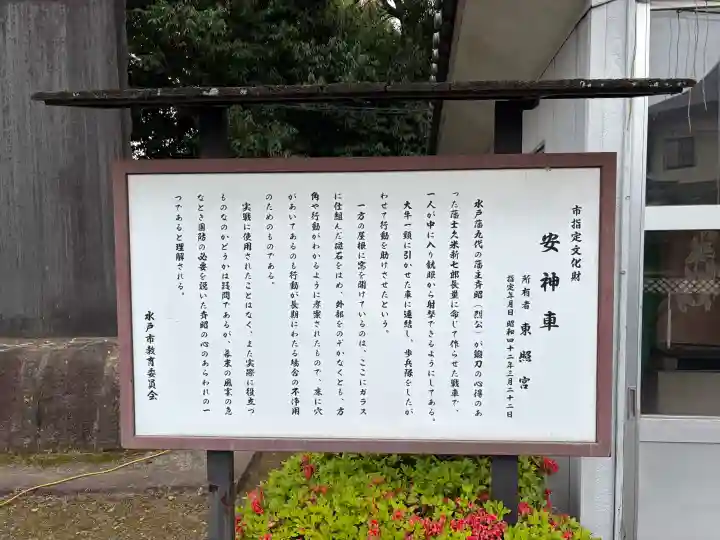 市指定文化財
安神車
所有者 東照宮
指定年月日 昭和四十二年三月二十二日
水戸藩九代の藩主斉昭(烈公)が鍛刀の心得のあ
った藩士久米新七郎長量に命じて作らせた戦車で、
一人が中に入り銃眼から射撃できるようにしてある。
大牛一頭に引かせた車に連結し、歩兵隊をしたが
わせて行動を助けさせたという。
一方の屋根に窓を開けているのは、ここにガラス
に仕組んだ磁石をはめ、外部をのぞかなくとも、方
角や行動がわかるように考案されたもので、床に穴
があいてあるのも行動が長期にわたる場合の不浄用
のためのものである。
実戦に使用されたことはなく、また実際に役立つ
ものなのかどうかは疑問であるが、幕末の風雲の急
なとき国防の必要を説いた斉昭の心のあらわれの一
つであると理解される。
水戸市教育委員会